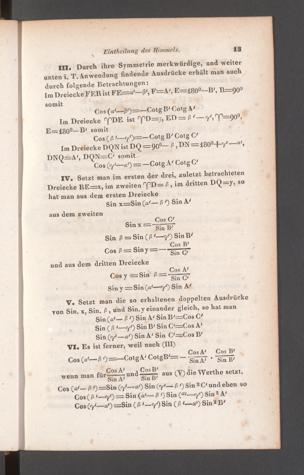 Eintheilung des Himmels. 13
III. Durch ihre Symmetrie merkwürdige, und weiter
unten i. T. Anwendung findende Ausdrücke erhält man auch
durch folgende Betrachtungen:
Im Dreiecke FEB ist FE=α'—β', F=A', E=180°—B', B=90°
somit
Cos (α'—β')=—Cotg B' Cotg A'
Im Dreiecke ♈DE ist ♈D=β, ED = β'—γ', ♈=90°,
E=180°—B' somit
Cos (β'—γ')=—Cotg B' Cotg C'
Im Dreiecke DQN ist DQ =90°—β, DN =180°+γ'—α',
DNQ=A', DQN=C' somit
Cos (γ'—α') =—Cotg A' Cotg C'
IV. Setzt man im ersten der drei, zuletzt betrachteten
Dreiecke BE=x, im zweiten ♈D=β, im dritten DQ=y, so
hat man aus dem ersten Dreiecke
Sin x=Sin (α'—β') Sin A'
aus dem zweiten
Sin x=Cos C'/Sin B'
Sin β=Sin (β'—γ') Sin B'
Cos β=Sin y=—Cos B'/Sin C'
und aus dem dritten Dreiecke
Cos y =Sin β=Cos A'/Sin C'
Sin y=Sin (α'—γ') Sin A'
V. Setzt man die so erhaltenen doppelten Ausdrücke
von Sin. x, Sin. β, und Sin. y einander gleich, so hat man
Sin (α'—β') Sin A' Sin B'=Cos C'
Sin (β'—γ') Sin B' Sin C'=Cos A'
Sin (γ'—α') Sin A' Sin C'=Cos B'
VI. Es ist ferner, weil nach (III)
Cos (α'—β')=—Cotg A' Cotg B'=—Cos A'/Sin A' . Cos B'/Sin B'
wenn man für Cos A'/Sin A' und Cos B'/Sin B' aus (V) die Werthe setzt,
Cos (α'—β')=Sin (γ'—α') Sin (γ'—β') Sin ² C' und eben so
Cos (β'—γ') = Sin (α'—β') Sin (α'—γ') Sin ² A'
Cos (γ'—α') =Sin (β'—γ') Sin (β'—α') Sin ² B'